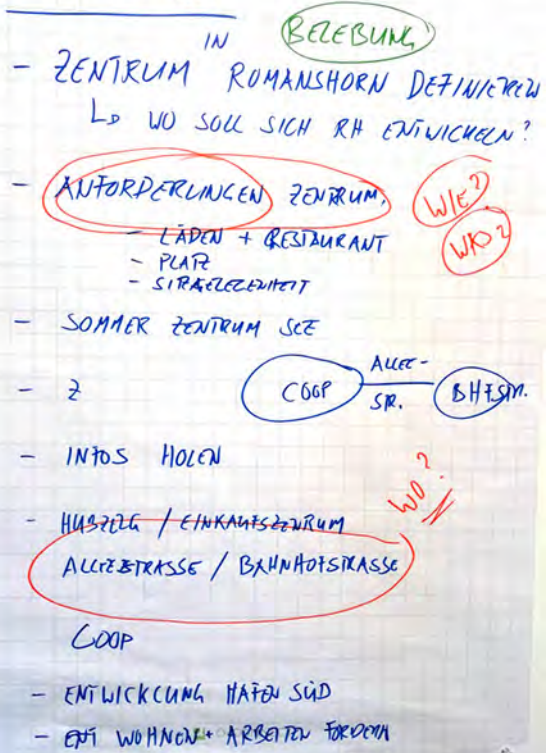 IN BELEBUNG
- ZENTRUM ROMANSHORN DEFINIEREN
↳ WO SOLL SICH RH ENTWICKELN?
- ANFORDERUNGEN ZENTRUM, WIE?
WAS?
- LÄDEN + RESTAURANT
- PLATZ
- SITZGELEGENHEIT
- SOMMER ZENTRUM SEE
- Z
COOP ALLEE-STR. BHFSTR.
- INFOS HOLEN
WO?
- HUBZELG / EINKAUFSZENTRUM
ALLEESTRASSE / BAHNHOFSTRASSE
COOP
- ENTWICKLUNG HAFEN SÜD
- WOHNEN + ARBEITEN FÖRDERN